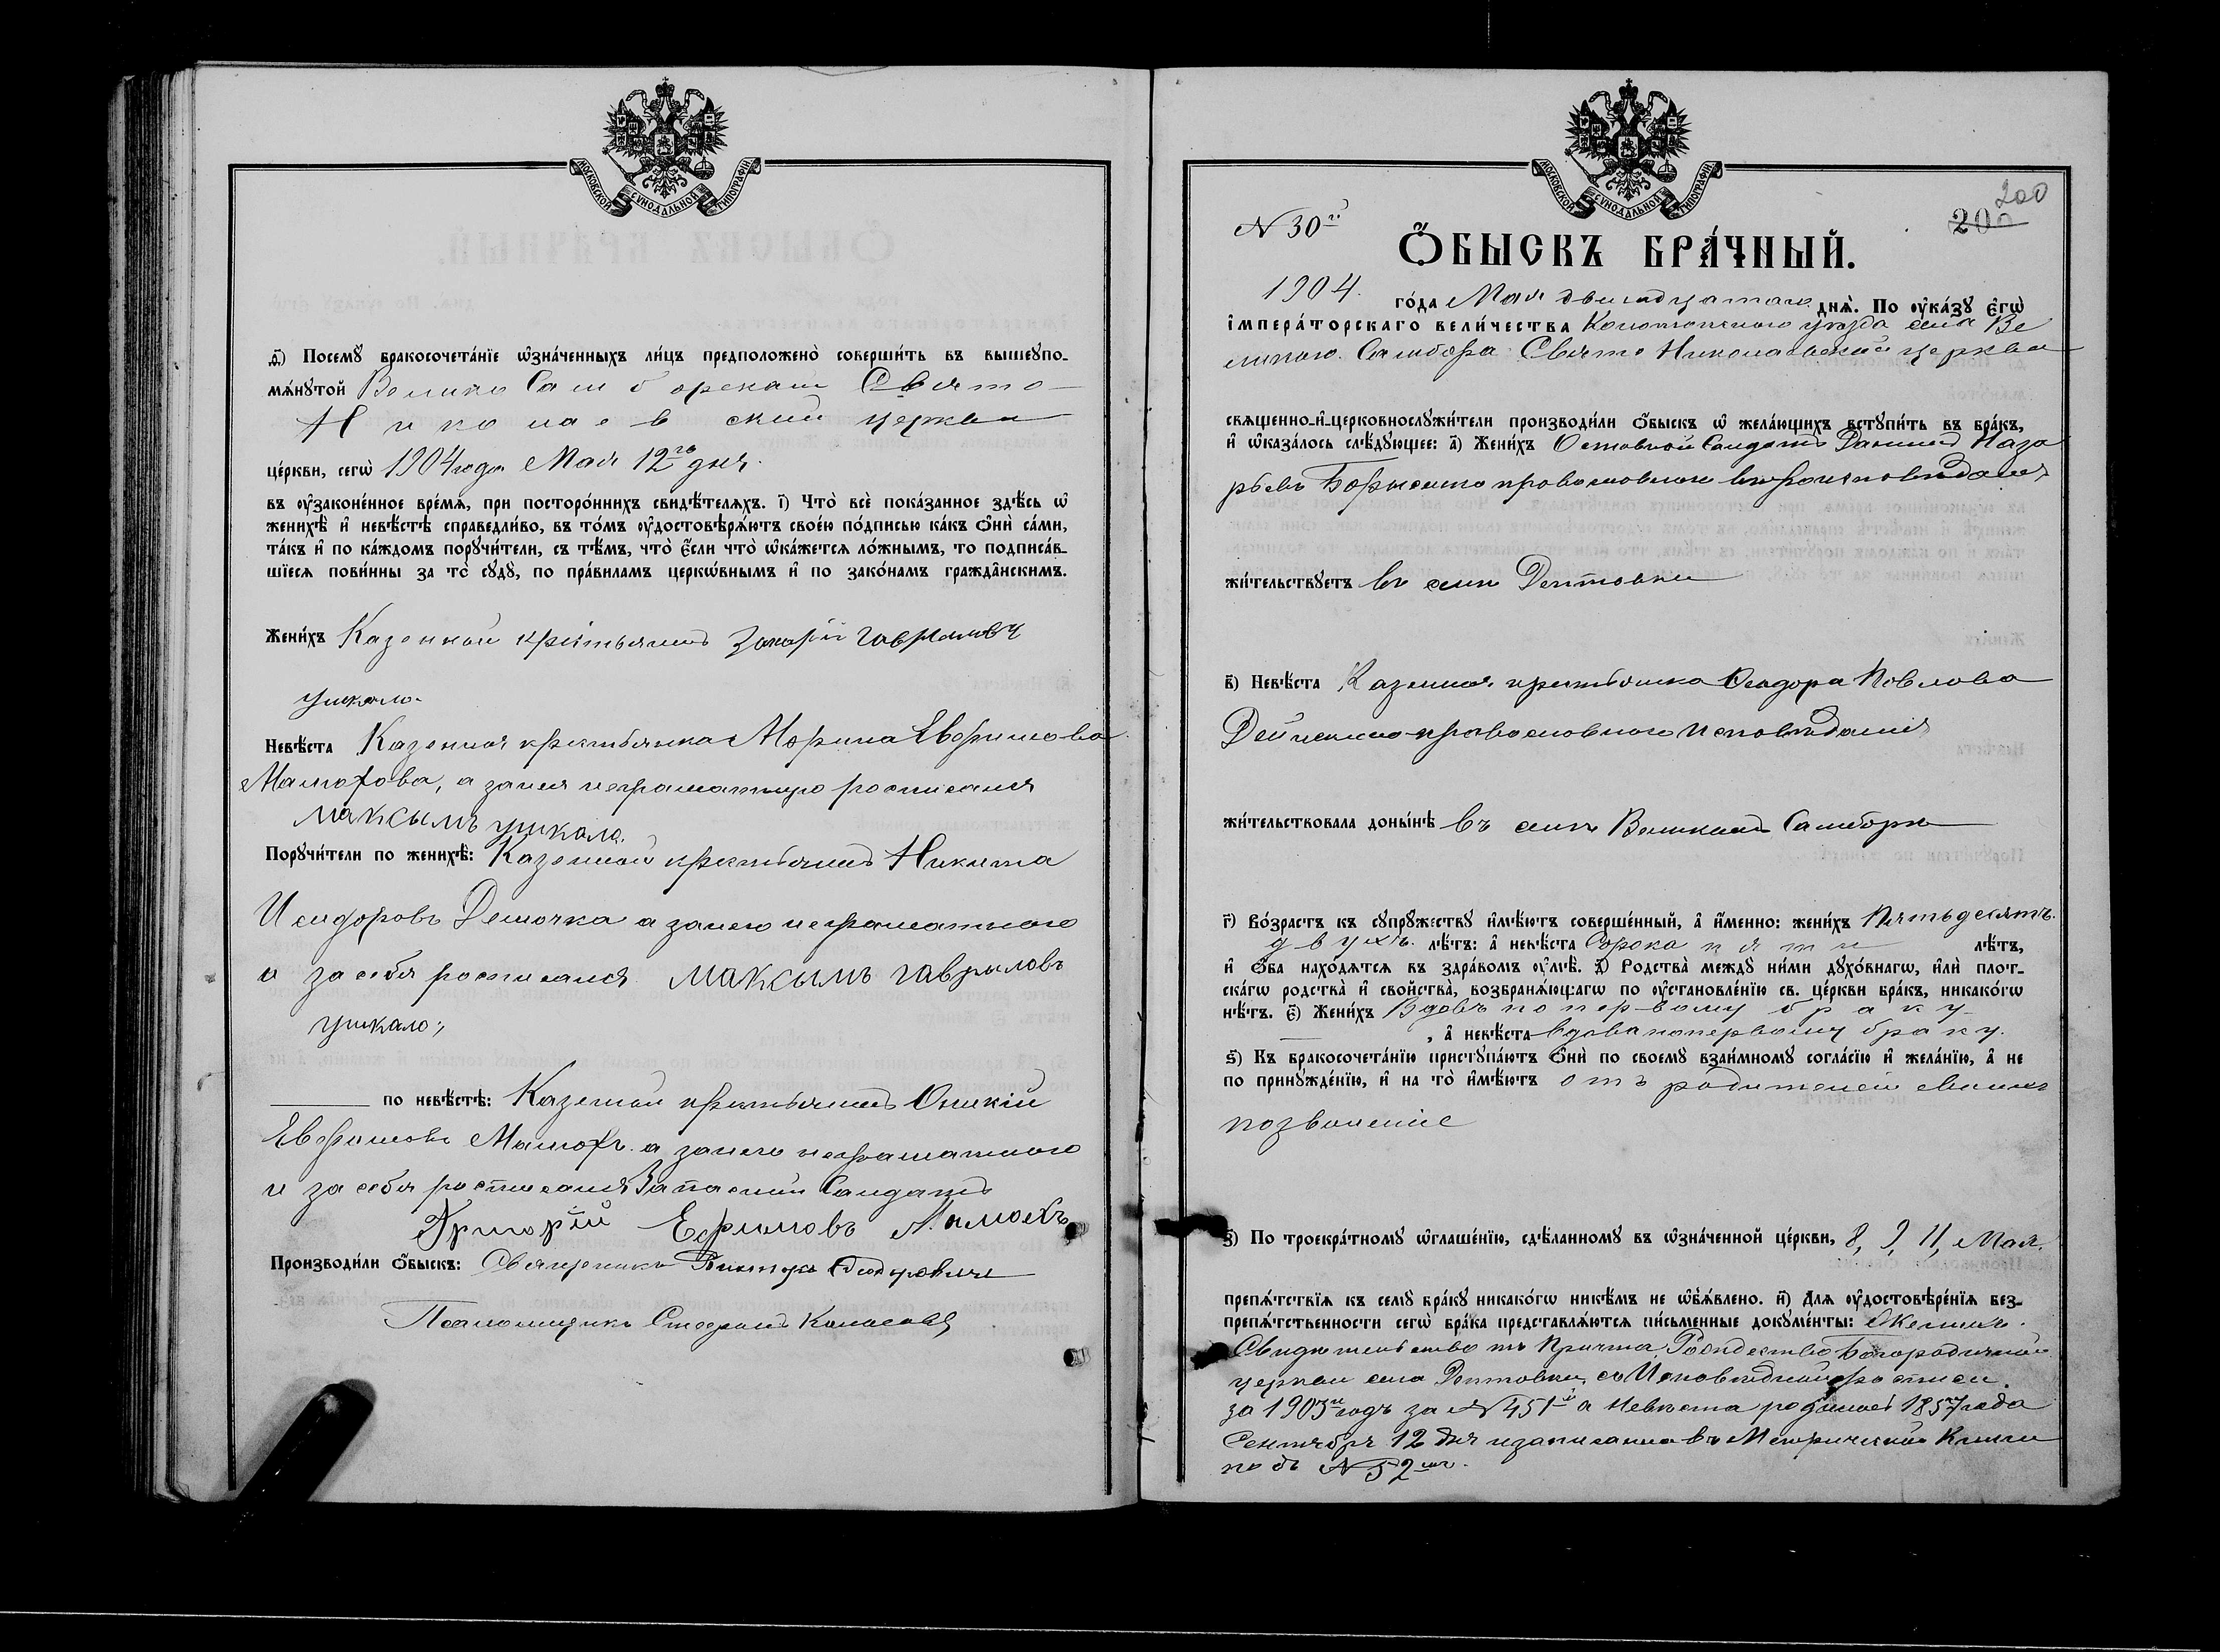 МОСКОВСКОЙ СѴНОДАЛЬНОЙ ТИПОГРАФІИ
д҃) Посемꙋ̀ бракосочета́нїе ѡ҆зна́ченныхъ ли́цъ предположено̀ соверши́ть въ вышеꙋпо-
мѧ́нꙋтой Велико Самборской Свято-
Николаевской церкви
це́ркви, сегѡ̀ 1904 года Мая 12го дня.
въ ѹ҆законе́нное вре́мѧ, при посторо́ннихъ свидѣ́телѧхъ. і҃) Что̀ всѐ пока́занное здѣ́сь ѡ҆
женихѣ̀ и҆ невѣ́стѣ справедли́во, въ то́мъ ѹ҆достовѣрѧ́ютъ свое́ю по́дписью ка́къ ѻ҆нѝ са́ми,
та́къ и҆ по ка́ждомъ порꙋчи́тели, съ тѣ́мъ, что̀ є҆́сли что̀ ѡ҆ка́жетсѧ ло́жнымъ, то подписа́в-
шїесѧ пови́нны за то̀ сꙋдꙋ̀, по пра́виламъ церкѡ́внымъ и҆ по зако́намъ гражда̂нскимъ.
Жени́хъ Казенной крестьянинъ Захарій гаврыловъ
ушкало.
Невѣ́ста Казенная крестьянка Марина Евфимова
Мамохова, а за нея неграматную росписался
максымъ ушкало.
Порꙋчи́тели по женихѣ̀: Казенной крестьянинъ Никита
Исидоровъ Демочка а за него неграматного
и за себя росписался максымъ гаврыловъ
ушкало
по невѣ́стѣ: Казенной крестьянинъ Оникій
Евфимовъ Мамохъ. а за него неграматного
и за себя росписался Запасный Солдатъ
Григорій Ефимовъ Мамохъ
Производи́ли ѻ҆́быскъ: Священникъ Викторъ
Псаломщикъ Стефанъ
МОСКОВСКОЙ СѴНОДАЛЬНОЙ ТИПОГРАФІИ
200
200
№ 30й
Ѻ҆́БЫСКЪ БРА́ЧНЫЙ.
1904. го́да Мая двенадцатого днѧ̀. По ѹ҆ка́зꙋ є҆гѡ̀
і҆мпера́торскаго вели́чества Конотопского уезда села Ве
ликого Самбора Свято Николаевской церкви
свѧщенно-и҆-церковнослꙋжи́тели производи́ли ѻ҆́быскъ ѡ҆ жела́ющихъ встꙋпи́ть въ бра́къ,
и҆ ѡ҆каза́лось слѣ́дꙋющее: а҃) Жени́хъ Отставной Солдатъ Даниилъ Наза
рьевъ Борысенко православного вероисповедания
жи́тельствꙋетъ въ селе Дептовки
в҃) Невѣ́ста Казенная крестьянка Феодора Павлова
Дейнекина православного исповедания
жи́тельствовала доны́нѣ въ селе Великомъ Самборе
г҃) Во́зрастъ къ сꙋпрꙋ́жествꙋ и҆мѣ́ютъ соверше́нный, а҆ и҆́менно: жени́хъ Пятьдесятъ
двухъ. лѣ́тъ: а҆ невѣ́ста Сорока пяти лѣ́тъ,
и҆ ѻ҆́ба нахо́дѧтсѧ въ здра́вомъ ѹ҆мѣ̀. д҃) Родства̀ междꙋ̀ ни́ми дꙋхо́внагѡ, и҆лѝ плот-
ска́гѡ родства̀ и҆ свойства̀, возбранѧ́ющагѡ по ѹ҆становле́нїю св. це́ркви бра́къ, никако́гѡ
нѣ́тъ. є҃) Жени́хъ Вдовъ по первому браку
, а҆ невѣ́ста вдова по первому браку.
ѕ҃) Къ бракосочета́нїю пристꙋпа́ютъ ѻ҆нѝ по своемꙋ̀ взаи́мномꙋ согла́сїю и҆ жела́нїю, а҆ не
по принꙋжде́нїю, и҆ на то̀ и҆мѣ́ютъ отъ родителей своихъ
позволеніе
з҃) По троекра́тномꙋ ѡ҆глаше́нїю, сдѣ́ланномꙋ въ ѡ҆зна́ченной це́ркви, 8, 9, 11, Мая.
препѧ́тствїѧ къ семꙋ̀ бра́кꙋ никако́гѡ никѣ́мъ не ѡ҆б̾ѧ́влено. и҃) Длѧ ѹ҆достовѣре́нїѧ без-
препѧ́тственности сегѡ̀ бра́ка представлѧ́ютсѧ пи́сьменные докꙋме́нты: Жених.
Свидетельство отъ Причта Рождество Богородичной
церкви села Дептовки, съ Исповедной росписи.
за 1903й годъ за № 451й а Невеста родилась 1857 года
Сентября 12 дня и записана въ Метрической Книги
подъ № 52